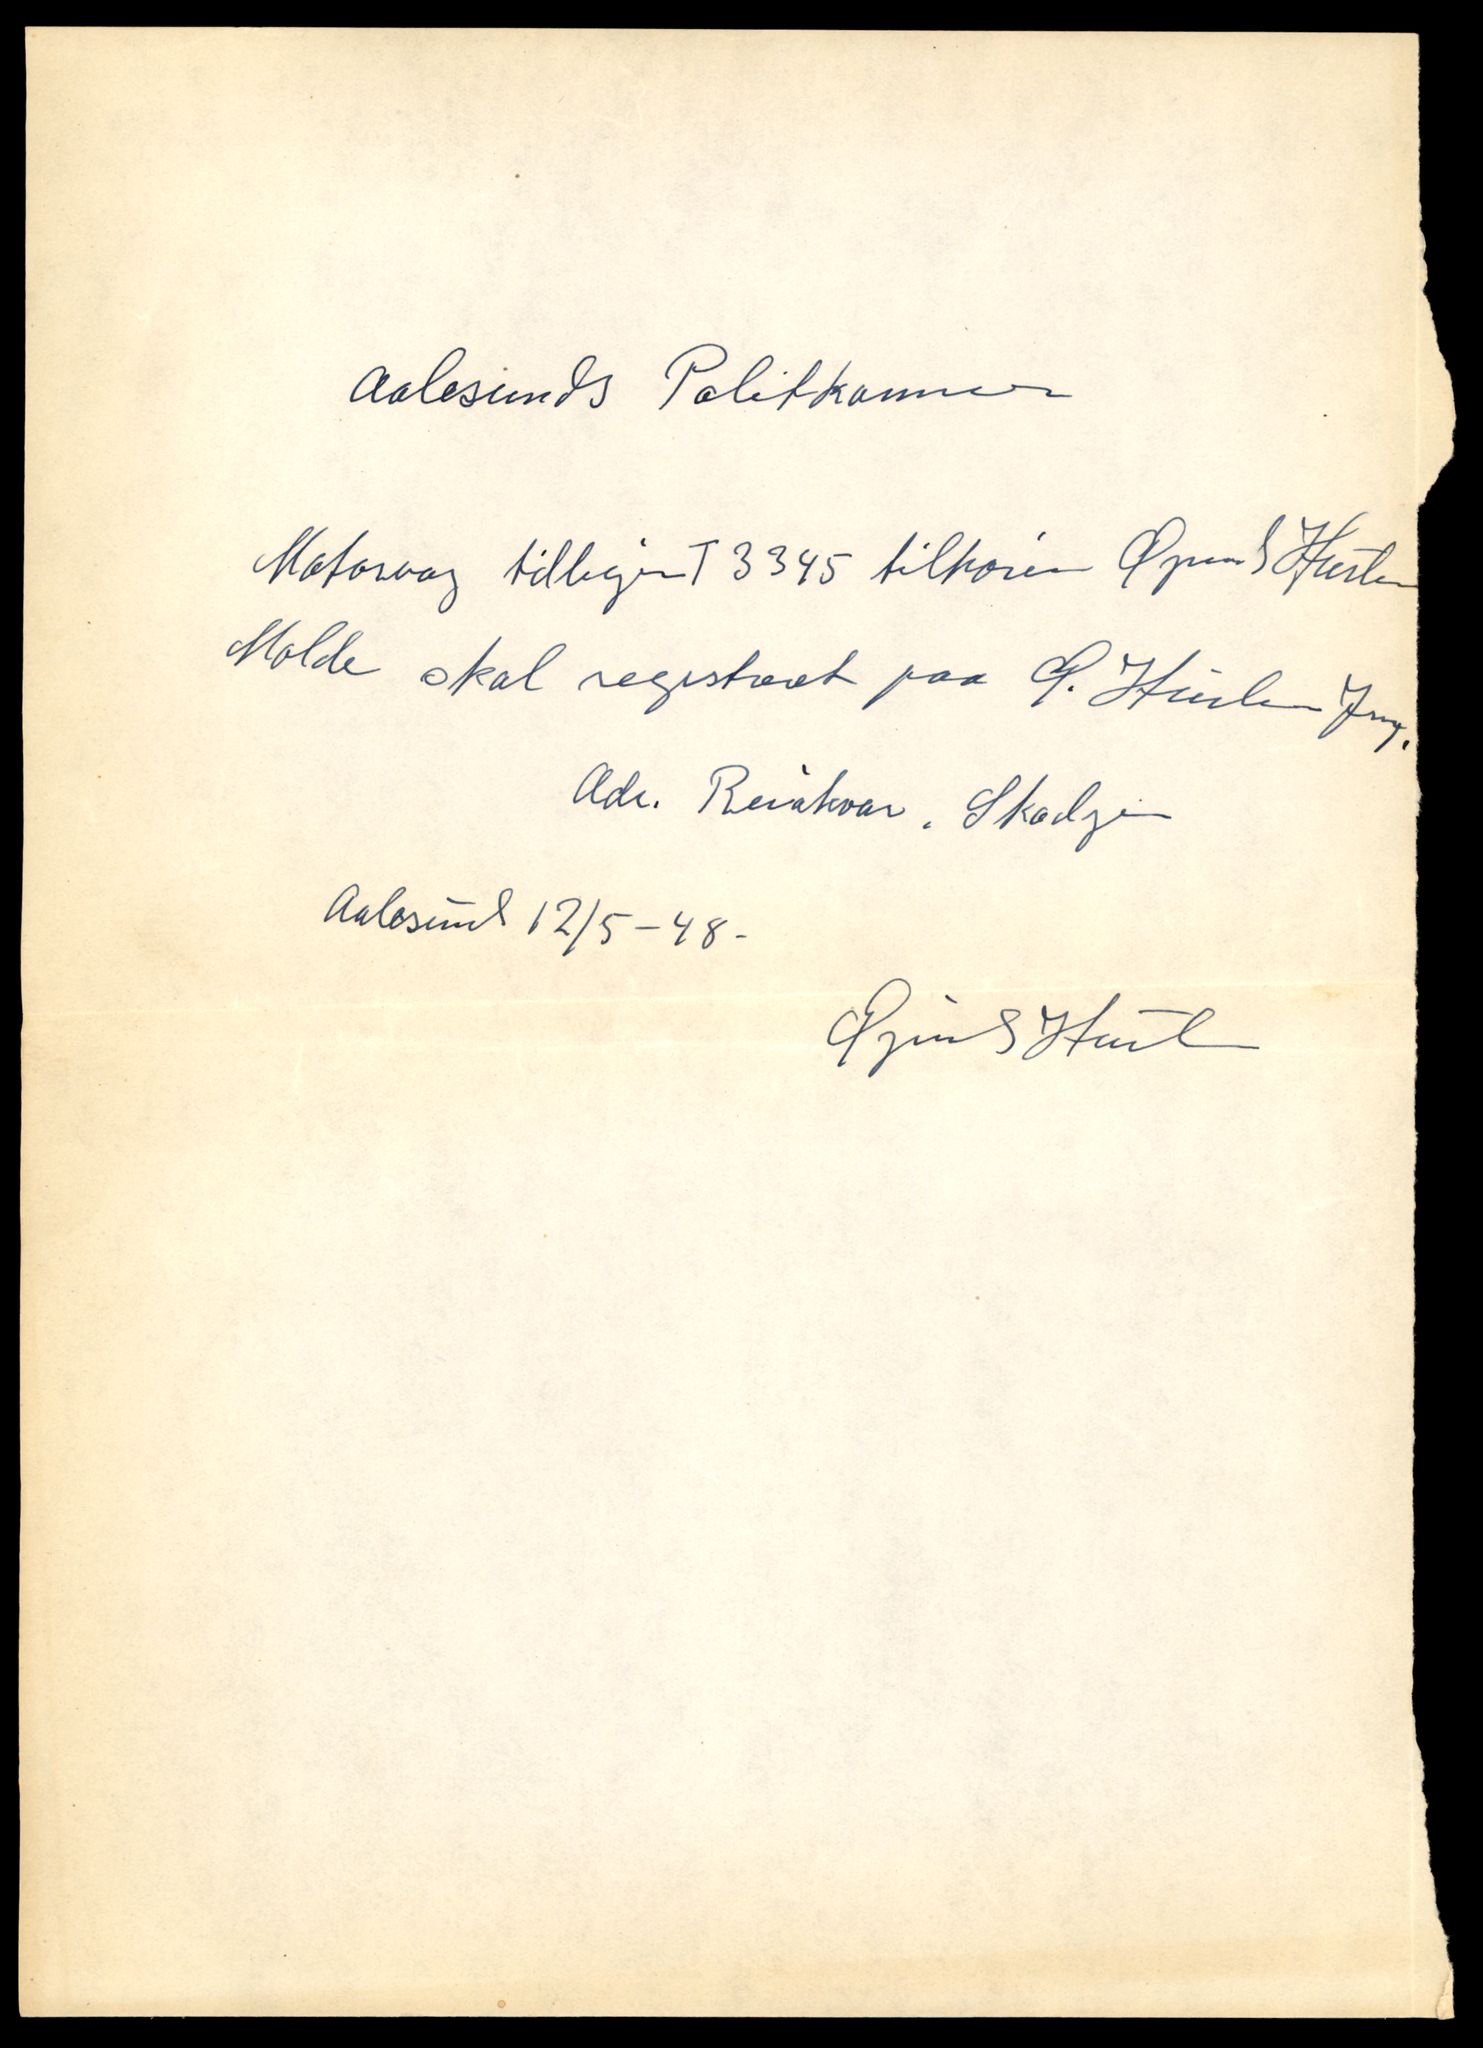 Aalesunds Politkammer
Motorvog tilligen T 3345 tilhører Øyind Huslen
Molde skal registreret paa Ø. Huslen Jny.
Adr. Reiakvar. Skodje
Aalesund 12/5-48-
Øyind Husl